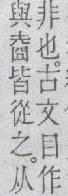 非也。古文目作
與皆從之。从